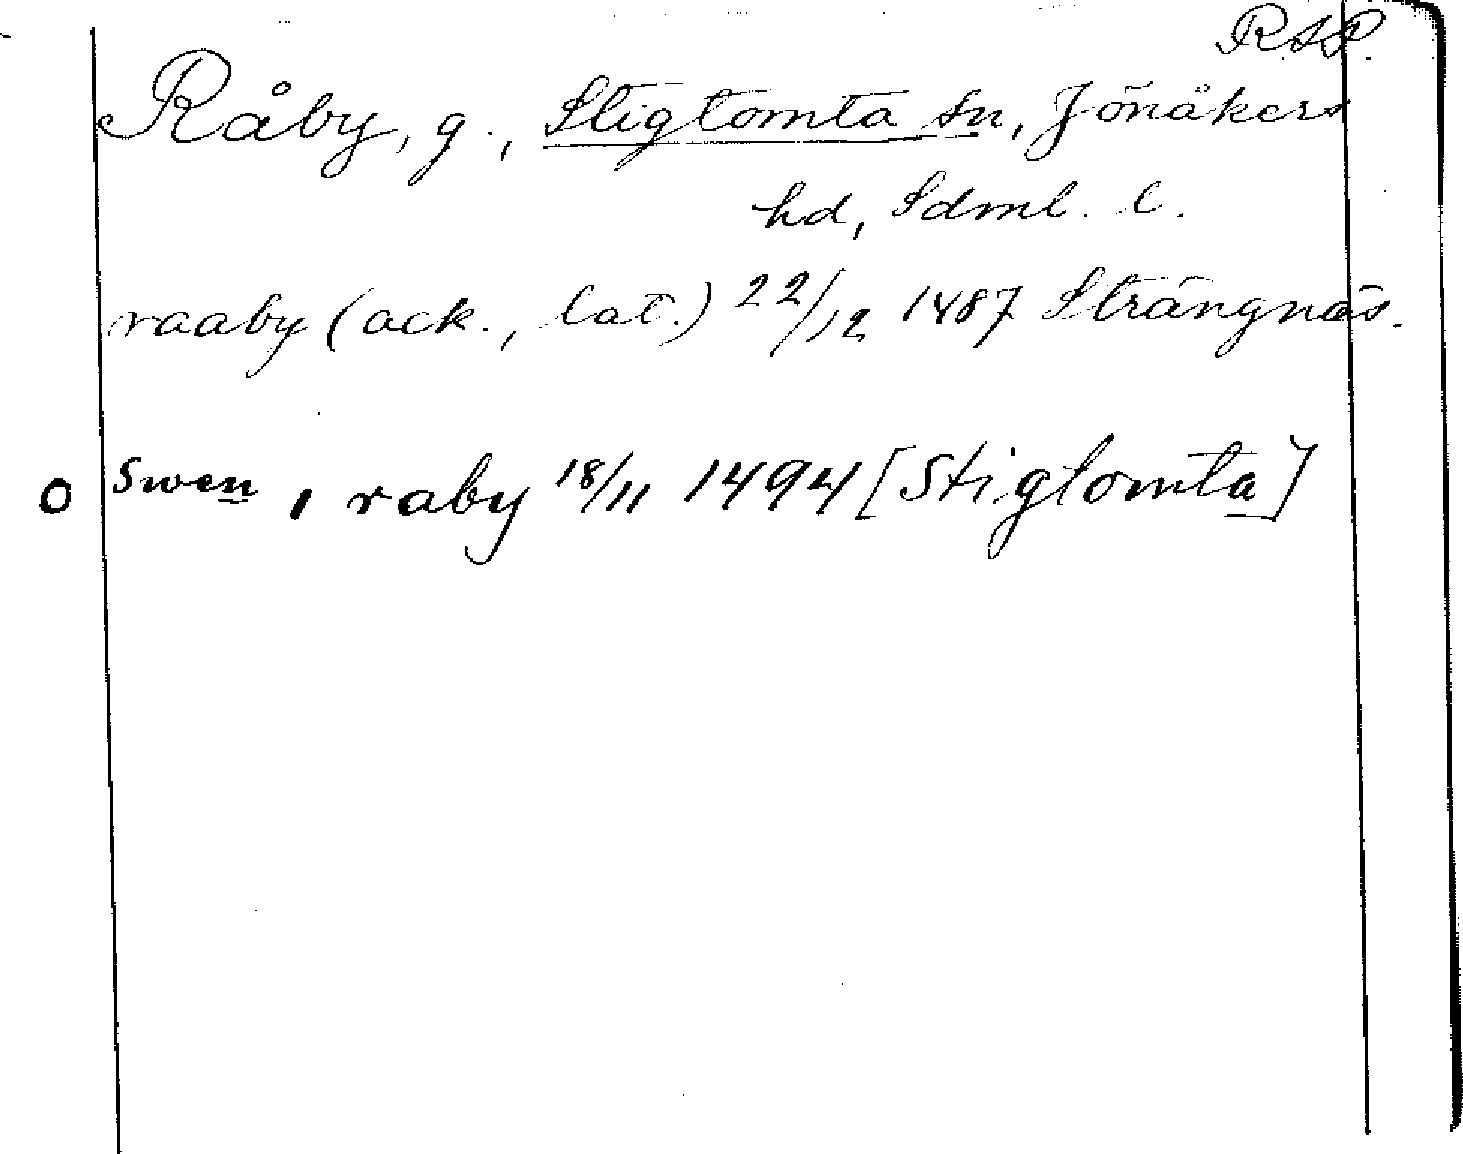 RAP.
Råby, g., Stigtomta sn, Jönåkers
hd, Sdml. l.
raaby (ack., lat.) 22/12 1487 Strängnäs.
o Swen ı raby 18/11 1494 [Stigtomta]